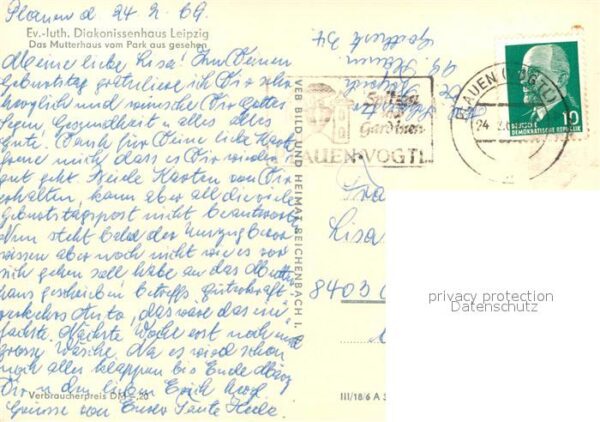 Plauen d 24 2. 69.
Ev.-luth. Diakonissenhaus Leipzig
Das Mutterhaus vom Park aus gesehen
Meine liebe Lisa! Zum Deinen
Geburtstag gratuliere ich Dir sehr
herzlich und wünsche Dir Gottes
Segen, Gesundheit u alles alles
Gute! Dank für Deine liebe Karte
freue mich dass es Dir wieder
gut geht. Beide Karten von Dir
erhalten, kann aber all die viele
Geburtstagspost nicht beantworten
Nun steht bald der Umzug bevor
wissen aber noch nicht wie es vor
sich gehen soll habe an das Mutter
haus geschrieben betreffs. Güterkraft
verkehrs Auto, das wäre das ein
fachste. Nächste Woche erst noch mal
grosse Wäsche. Na es wird schon
noch alles klappen bis Ende März
Dir u dem lieben Erich herzl
Grüsse von Eurer Tante Hede
Verbraucherpreis DM -,20
VEB BILD UND HEIMAT REICHENBACH I.
Spitzen
und
Gardinen
LAUEN·VOGTL.
LAUEN (VOGTL)
24
10
DEUTSCHE
DEMOKRATISCHE REPUBLIK
Lisa
8403
III/18/6 A 3
privacy protection
Datenschutz